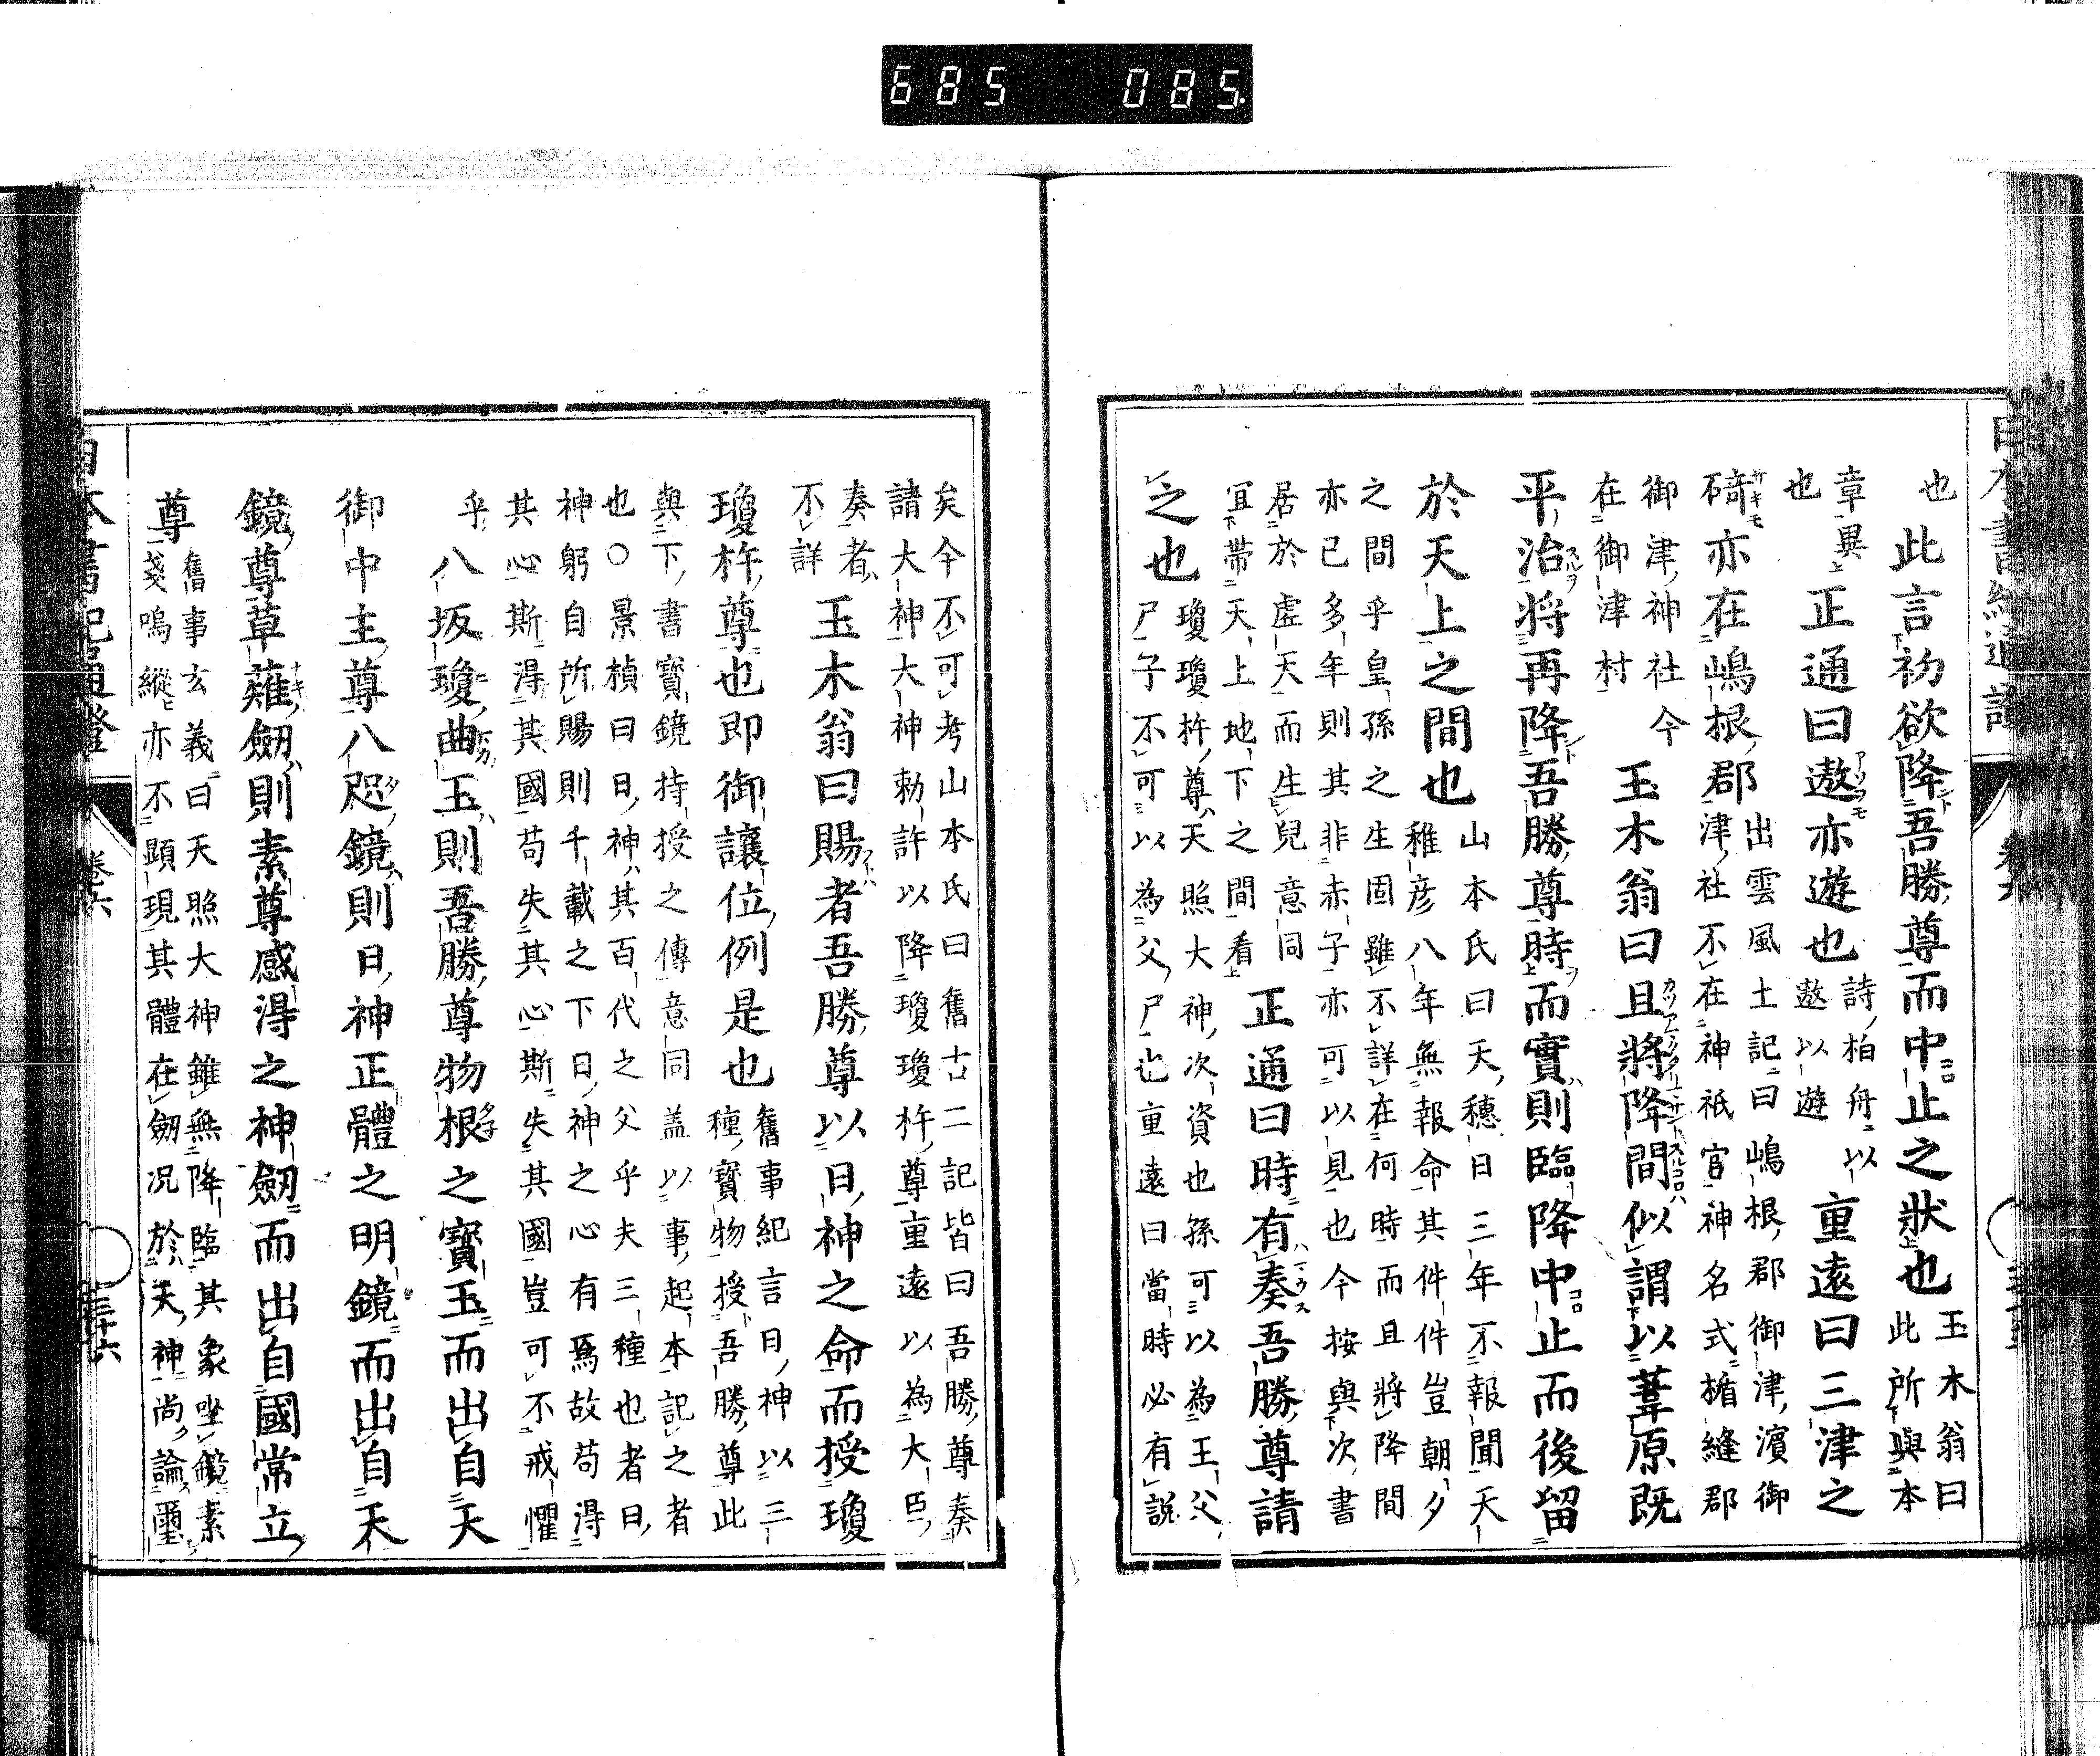 685 085
也此言初欲降吾勝尊而中止之狀也玉木翁曰
此所與本
章異
也正通曰遨亦遊也詩柏舟以
遨以遊重遠曰三津之
碕亦在嶋根郡出雲風土記曰嶋根郡御津濱御
津社不在神祇官神名式楯縫郡
御津神社今
在御津村玉木翁曰且將降間似謂以葦原既
平治将再降吾勝尊時而實則臨降中止而後留
於天上之間也山本氏曰天穗日三年不報聞天
稚彦八年無報命其件件豈朝夕
之間乎皇孫之生固雖不詳在何時而且將降間
亦已多年則其非赤子亦可以見也今按與次書
居於虚天而生兒意同
宜帶天上地下之間看正通曰時有奏吾勝尊請
之也瓊瓊杵尊天照大神次資也孫可以為王父
尸子不可以為父尸也重遠曰當時必有說
日本書紀通證 卷六
矣今不可考山本氏曰舊古二記皆曰吾勝尊奏
諸大神大神勅許以降瓊瓊杵尊重遠以為大臣
奏者
不詳玉木翁曰賜者吾勝尊以日神之命而授瓊
瓊杵尊也即御讓位例是也舊事紀言日神以三
種寶物授吾勝尊此
與下書寶鏡持授之傳意同盖以事起本記之者
也○景楨曰日神其百代之父乎夫三種也者日
神躬自所賜則千載之下日神之心有焉故苟得
其心斯得其國苟失其心斯失其國豈可不戒懼
乎八坂瓊曲玉則吾勝尊物根之寶玉而出自天
御中主尊八咫鏡則日神正體之明鏡而出自天
鏡尊草薙劔則素尊感得之神劔而出自國常立
尊舊事玄義曰天照大神雖無降臨其象坐鏡素
戔嗚縱亦不顕現其體在劔况於天神尚論璽
日本書紀通證 卷六 三十六